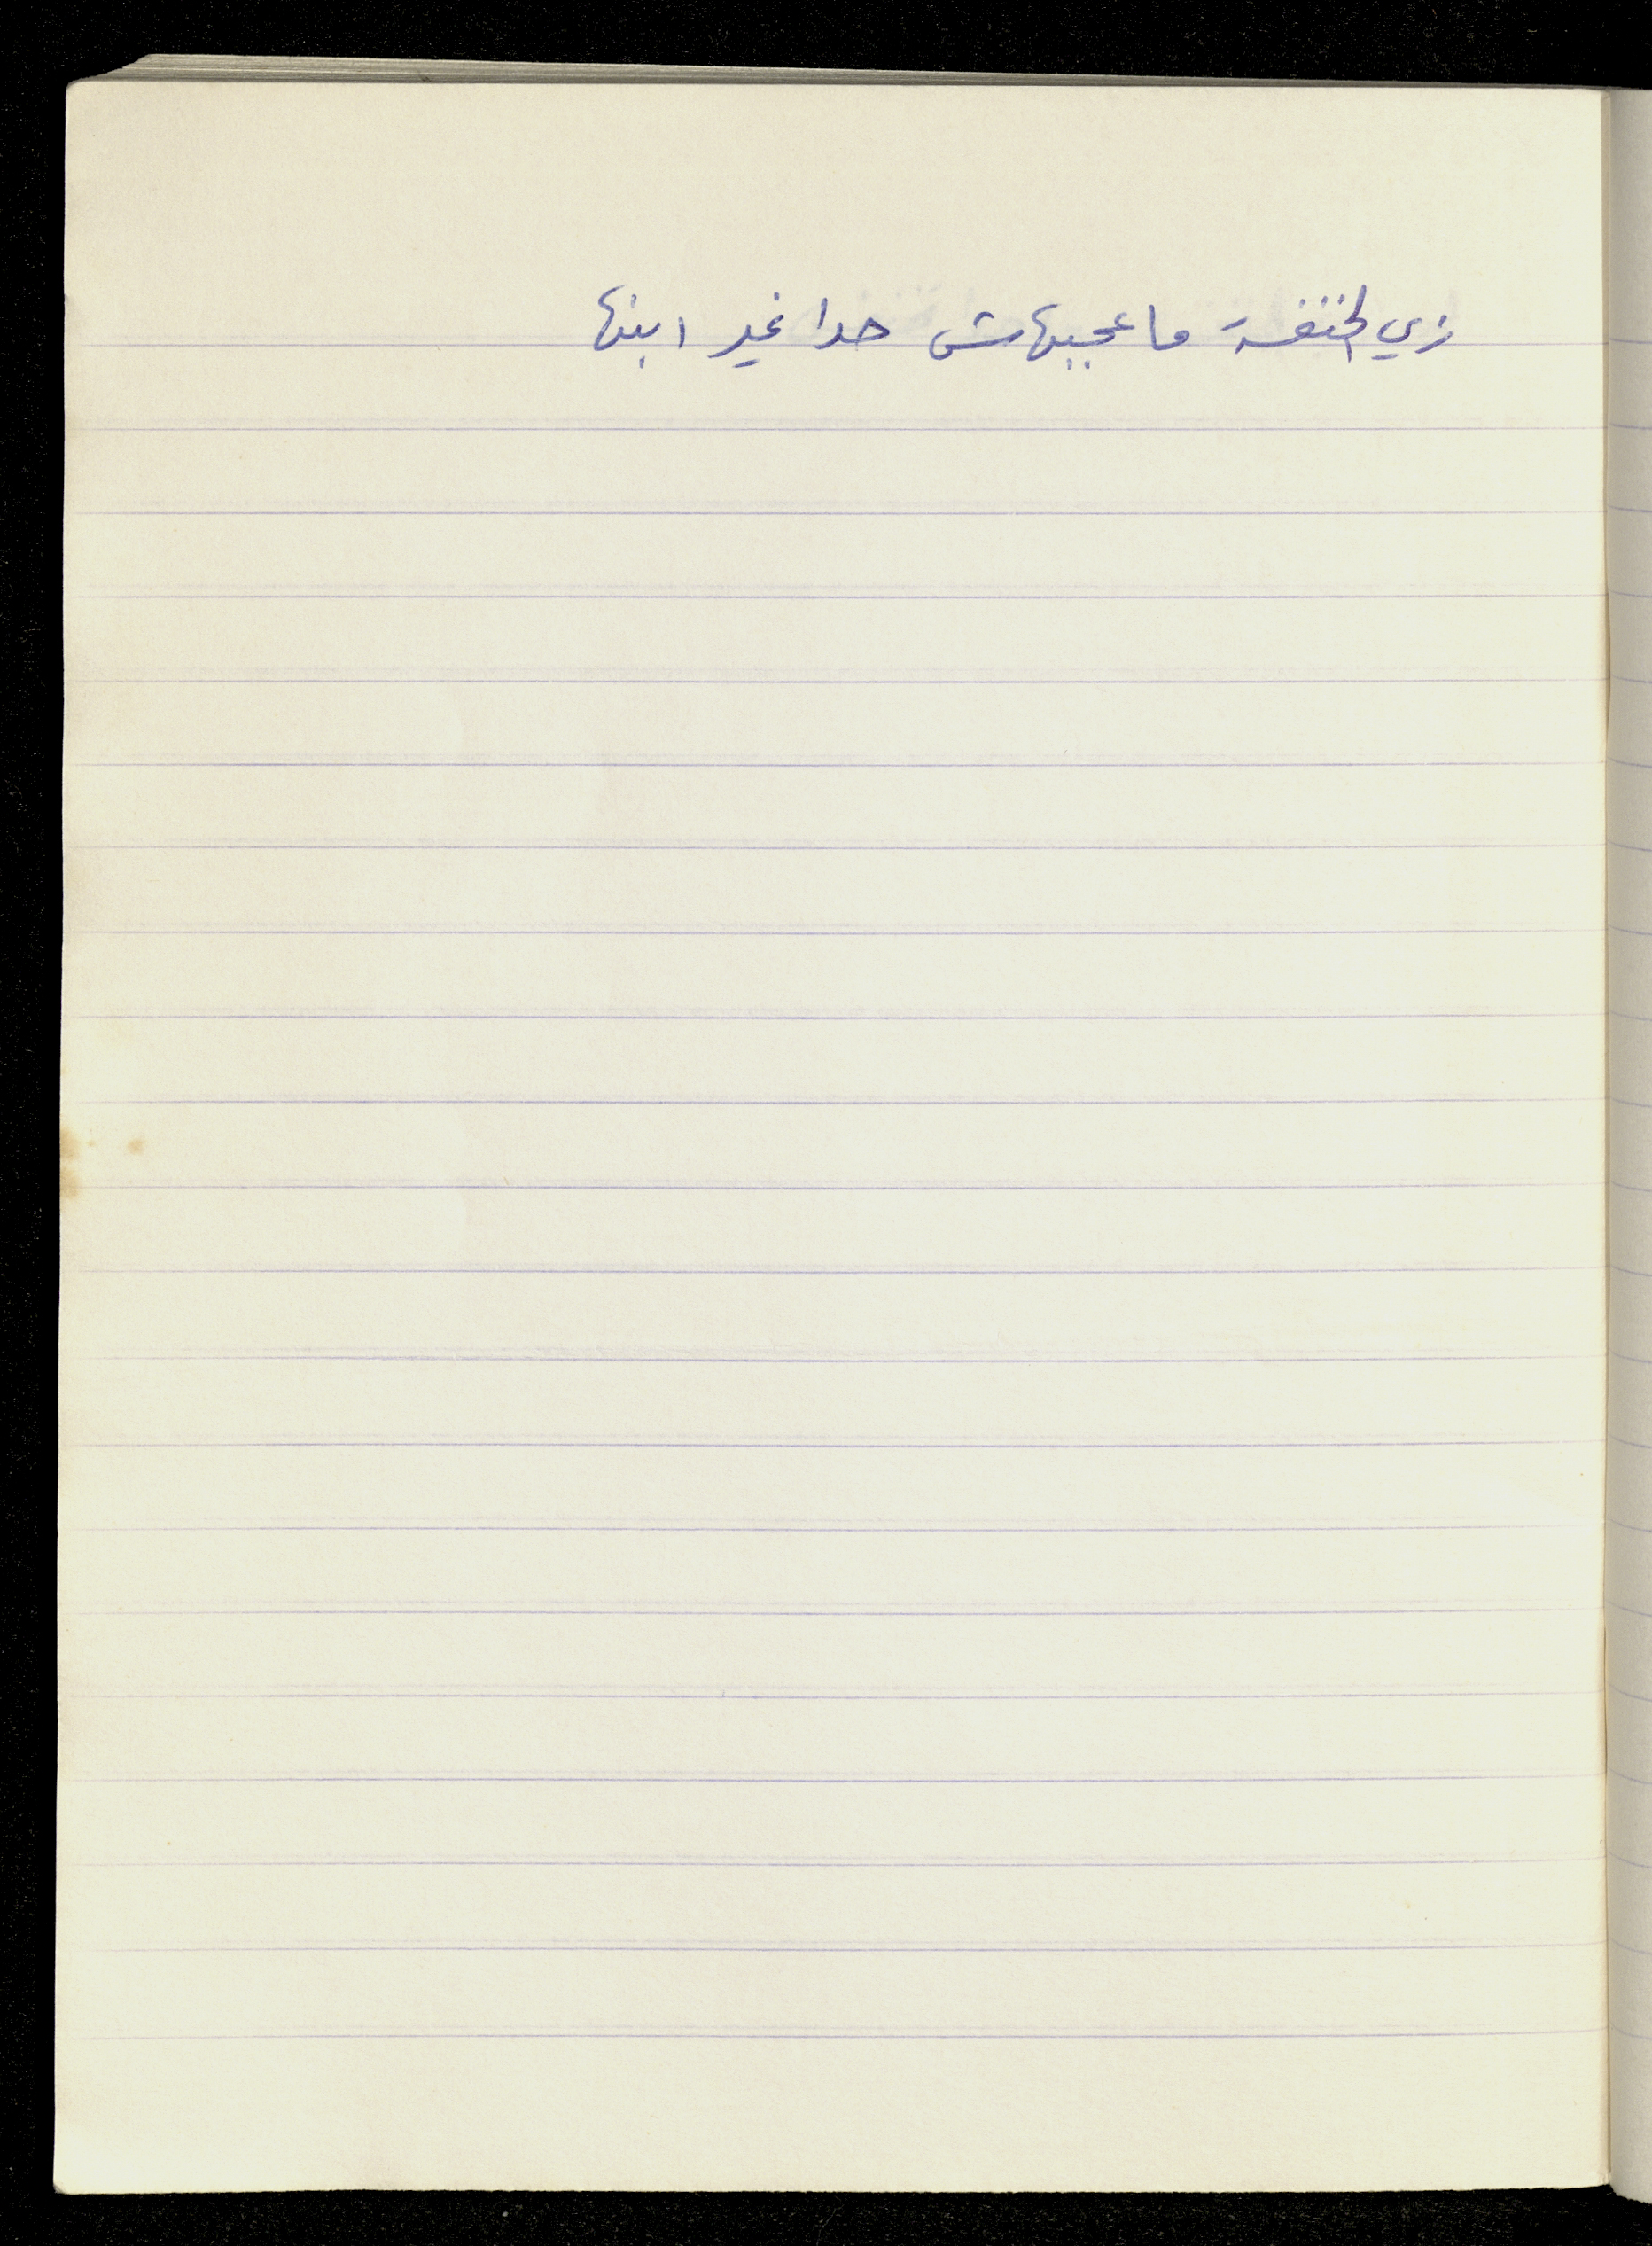 زي الخنفسة ما عجبهاش حدا غير ابنها